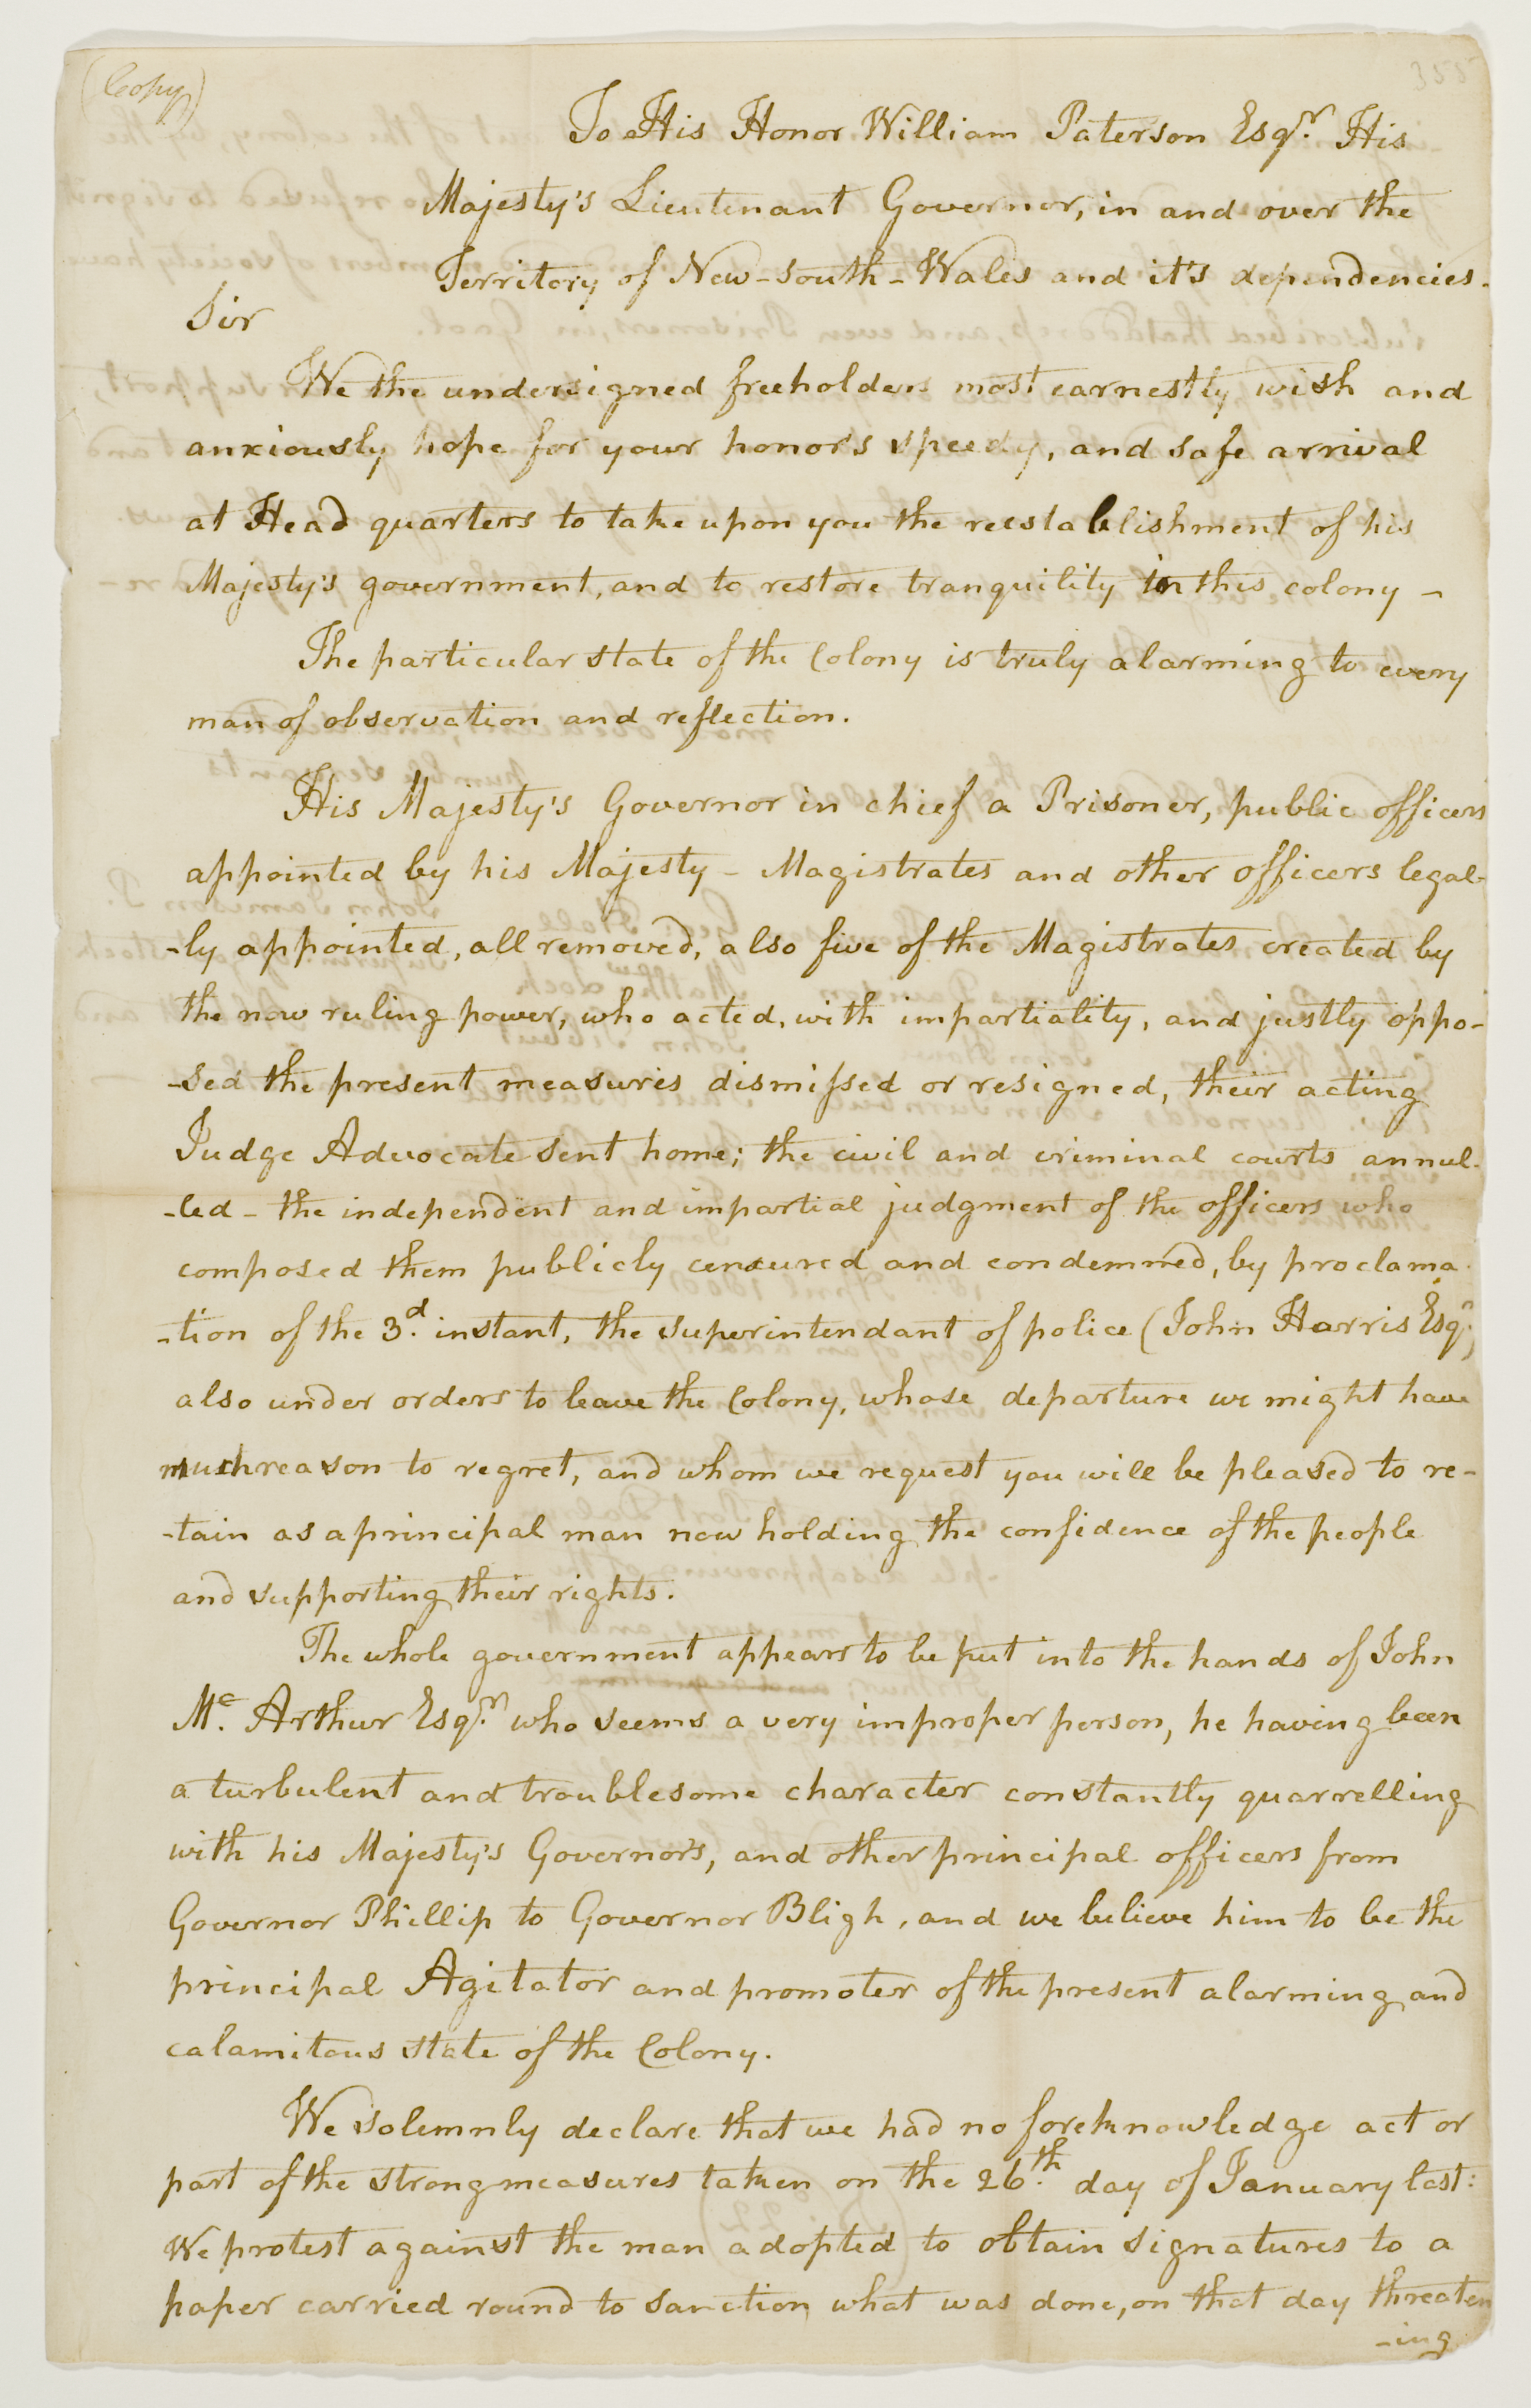 (Copy)
355
To His Honor William Paterson Esqr. His
Majesty's Lieutenant Governor, in and over the
Territory of New-South-Wales and it's dependencies.
Sir
We the undersigned freeholders most earnestly wish and
anxiously hope for your honor's speedy, and safe arrival
at Head quarters to take upon you the reestablishment of his
Majesty's government, and to restore tranquility in this colony -
The particular state of the Colony is truly alarming to every
man of observation and reflection.
His Majesty's Governor in chief a Prisoner, public officers
appointed by his Majesty - Magistrates and other officers legal-
-ly appointed, all removed, also five of the Magistrates created by
the now ruling power, who acted, with impartiality, and justly oppo-
-sed the present measures dismissed or resigned, their acting
Judge Advocate sent home; the civil and criminal courts annul-
-led - the independent and impartial judgment of the officers who
composed them publicly censured and condemned, by proclama-
-tion of the 3d. instant, the superintendant of police (John Harris Esqr.)
also under orders to leave the Colony, whose departure we might have
much reason to regret, and whom we request you will be pleased to re-
-tain as a principal man now holding the confidence of the people
and supporting their rights.
The whole government appears to be put into the hands of John
Mc. Arthur Esqr. who seems a very improper person, he having been
a turbulent and troublesome character constantly quarrelling
with his Majesty's Governor's, and other principal officers from
Governor Phillip to Governor Bligh, and we believe him to be the
principal Agitator and promoter of the present alarming and
calamitous state of the Colony.
We solemnly declare that we had no foreknowledge act or
part of the strong measures taken on the 26th. day of January last:
We protest against the man adopted to obtain signatures to a
paper carried round to sanction what was done, on that day threaten
-ing